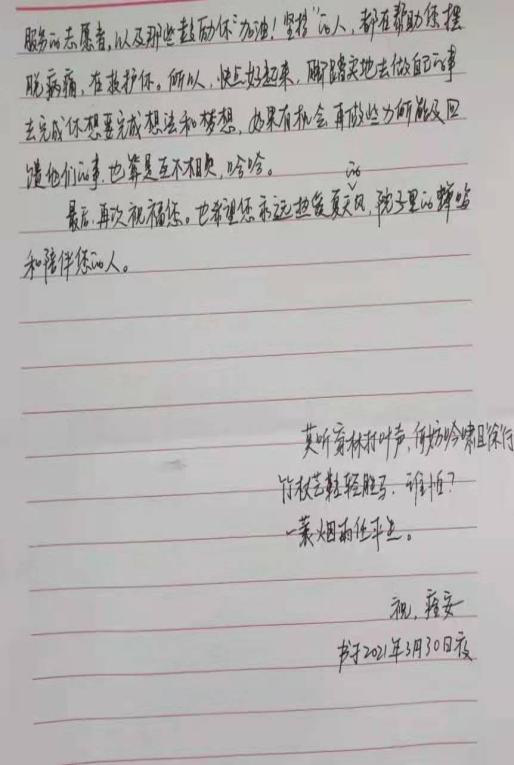 服务的志愿者，以及那些鼓励你“加油！坚持”的人，都在帮助您摆
脱病痛，在救护你。所以，快点好起来，脚踏实地去做自己的事
去完成你想要完成想法和梦想，如果有机会再做些力所能及回
馈他们的事，也算是互不相欠，哈哈。
最后，再次祝福您。也希望您永远热爱夏天的风，院子里的蝉鸣
和陪伴您的人。
莫听穿林打叶声，何妨吟啸且徐行
竹杖芒鞋轻胜马，谁怕？
一蓑烟雨任平生。
祝，痊安
书于2021年3月30日夜